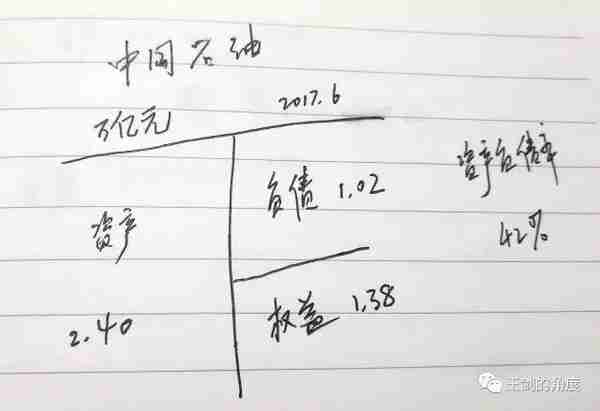 中国石油
万亿元
2017.6
资产
2.40
负债 1.02
权益 1.38
资产负债率
42%
王剑的角度